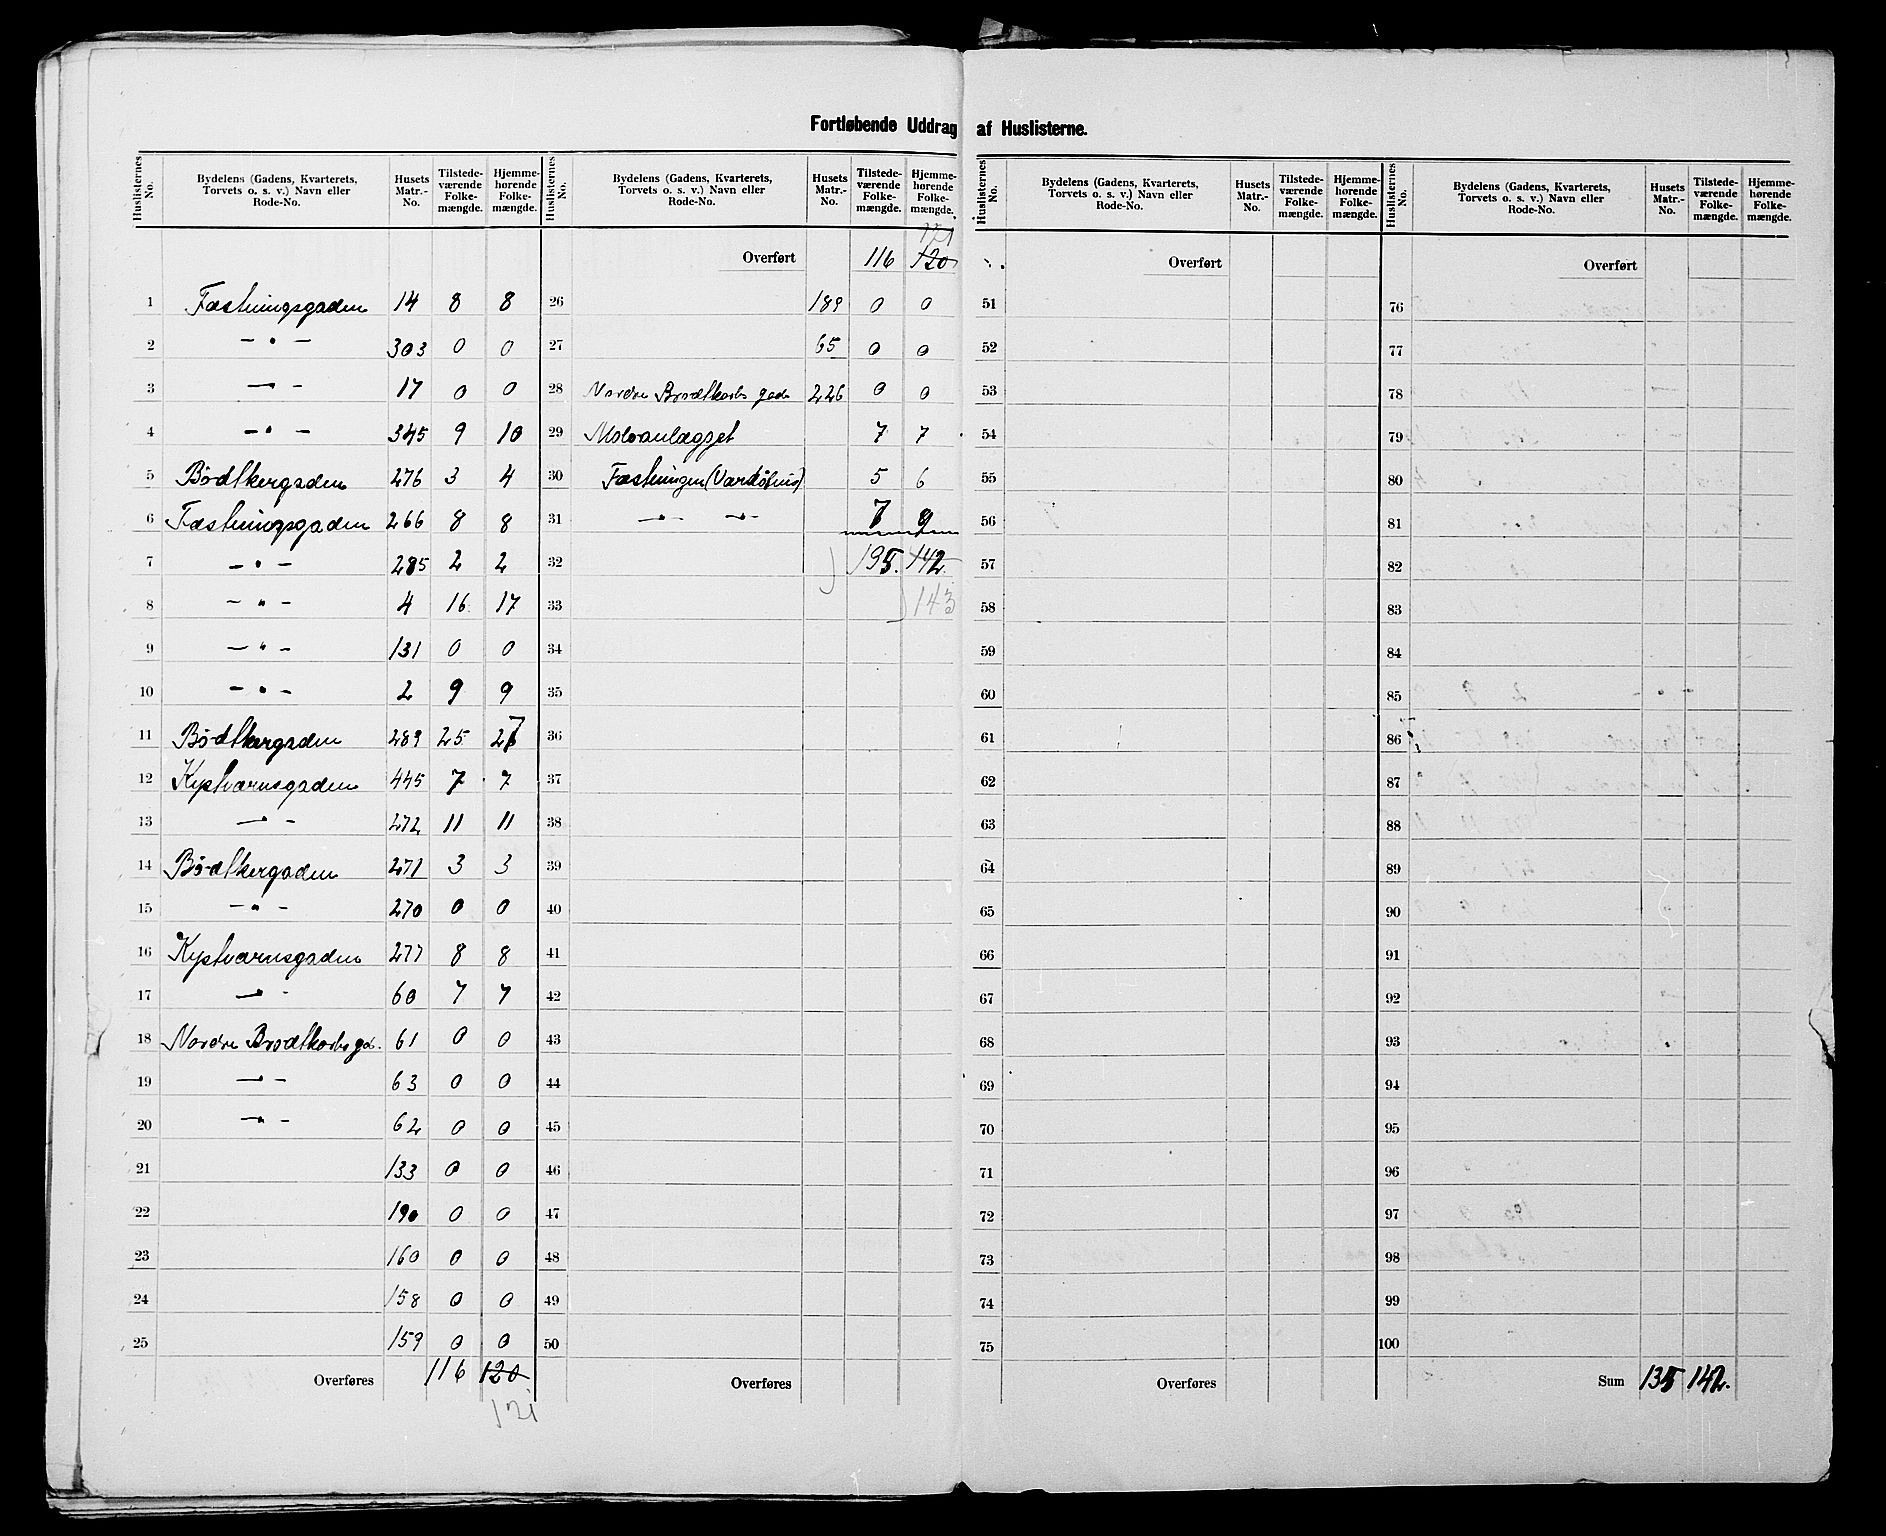 Fortløbende Uddrag af Huslisterne.
Huslisternes No. Bydelens (Gadens, Kvarterets, Torvets o. s. v.) Navn eller Rode-No. Husets Matr.-No. Tilstedeværende Folkemængde. Hjemmehørende Folkemængde.
1 Fæstningsgaden 14 8 8
2 — " — 303 0 0
3 — " — 17 0 0
4 — " — 345 9 10
5 Bødtkergaden 276 3 4
6 Fæstningsgaden 266 8 8
7 — " — 285 2 2
8 — " — 4 16 17
9 — " — 131 0 0
10 — " — 2 9 9
11 Bødtkergaden 289 25 27
12 Kystværnsgaden 445 7 7
13 — " — 272 11 11
14 Bødtkergaden 271 3 3
15 — " — 270 0 0
16 Kystværnsgaden 277 8 8
17 — " — 60 7 7
18 Nordre Brodtkorbs gd. 61 0 0
19 — " — 63 0 0
20 — " — 62 0 0
21 133 0 0
22 190 0 0
23 160 0 0
24 158 0 0
25 159 0 0
Overføres 116 120
121
Huslisternes No. Bydelens (Gadens, Kvarterets, Torvets o. s. v.) Navn eller Rode-No. Husets Matr.-No. Tilstedeværende Folkemængde. Hjemmehørende Folkemængde.
121
Overført 116 120
26 189 0 0
27 65 0 0
28 Nordre Brodtkorbs gade 226 0 0
29 Moloanlægget 7 7
30 Fæstningen (Vardøhus) 5 6
31 — " — — " — 7 9
32 135. 142
33 143
34
35
36
37
38
39
40
41
42
43
44
45
46
47
48
49
50
Overføres
Huslisternes No. Bydelens (Gadens, Kvarterets, Torvets o. s. v.) Navn eller Rode-No. Husets Matr.-No. Tilstedeværende Folkemængde. Hjemmehørende Folkemængde.
Overført
51
52
53
54
55
56
57
58
59
60
61
62
63
64
65
66
67
68
69
70
71
72
73
74
75
Overføres
Huslisternes No. Bydelens (Gadens, Kvarterets, Torvets o. s. v.) Navn eller Rode-No. Husets Matr.-No. Tilstedeværende Folkemængde. Hjemmehørende Folkemængde.
Overført
76
77
78
79
80
81
82
83
84
85
86
87
88
89
90
91
92
93
94
95
96
97
98
99
100
Sum 135 142.